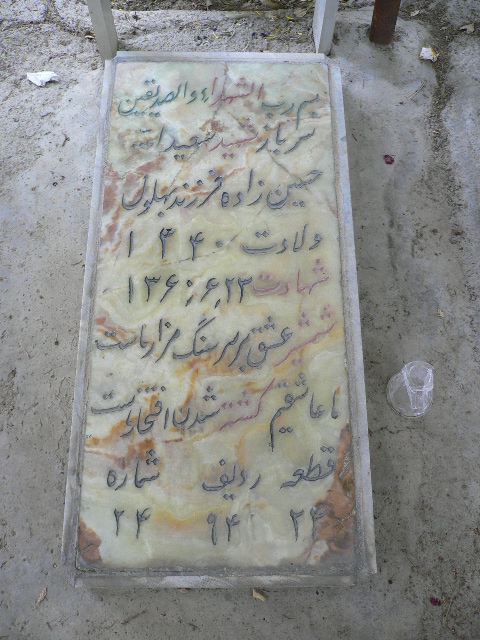 بسم رب الشهداء والصدیقین
سرباز شهید سعید
حسین زاده فرزند بهلول
ولادت ۱۳۴۰
شهادت ۱۳۶۰٫۶٫۲۳
شمشیر عشق بر سر سنگ مزار ماست
ما عاشقیم کشته شدن افتخار ماست
قطعه ردیف شماره
۲۴ ۹۴ ۲۴